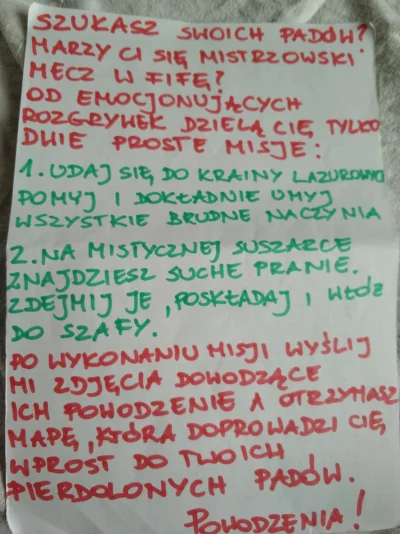 SZUKASZ SWOICH PADÓW?
MARZY CI SIĘ MISTRZOWSKI
MECZ W FIFĘ?
OD EMOCJONUJĄCYCH
ROZGRYWEK DZIELĄ CIĘ TYLKO
DWIE PROSTE MISJE:
1. UDAJ SIĘ DO KRAINY LAZUROWYCH
POMYJ I DOKŁADNIE UMYJ
WSZYSTKIE BRUDNE NACZYNIA
2. NA MISTYCZNEJ SUSZARCE
ZNAJDZIESZ SUCHE PRANIE.
ZDEJMIJ JE, POSKŁADAJ I WŁÓŻ
DO SZAFY.
PO WYKONANIU MISJI WYŚLIJ
MI ZDJĘCIA DOWODZĄCE
ICH POWODZENIE A OTRZYMASZ
MAPĘ, KTÓRA DOPROWADZI CIĘ
WPROST DO TWOICH
PIERDOLONYCH PADÓW.
POWODZENIA!